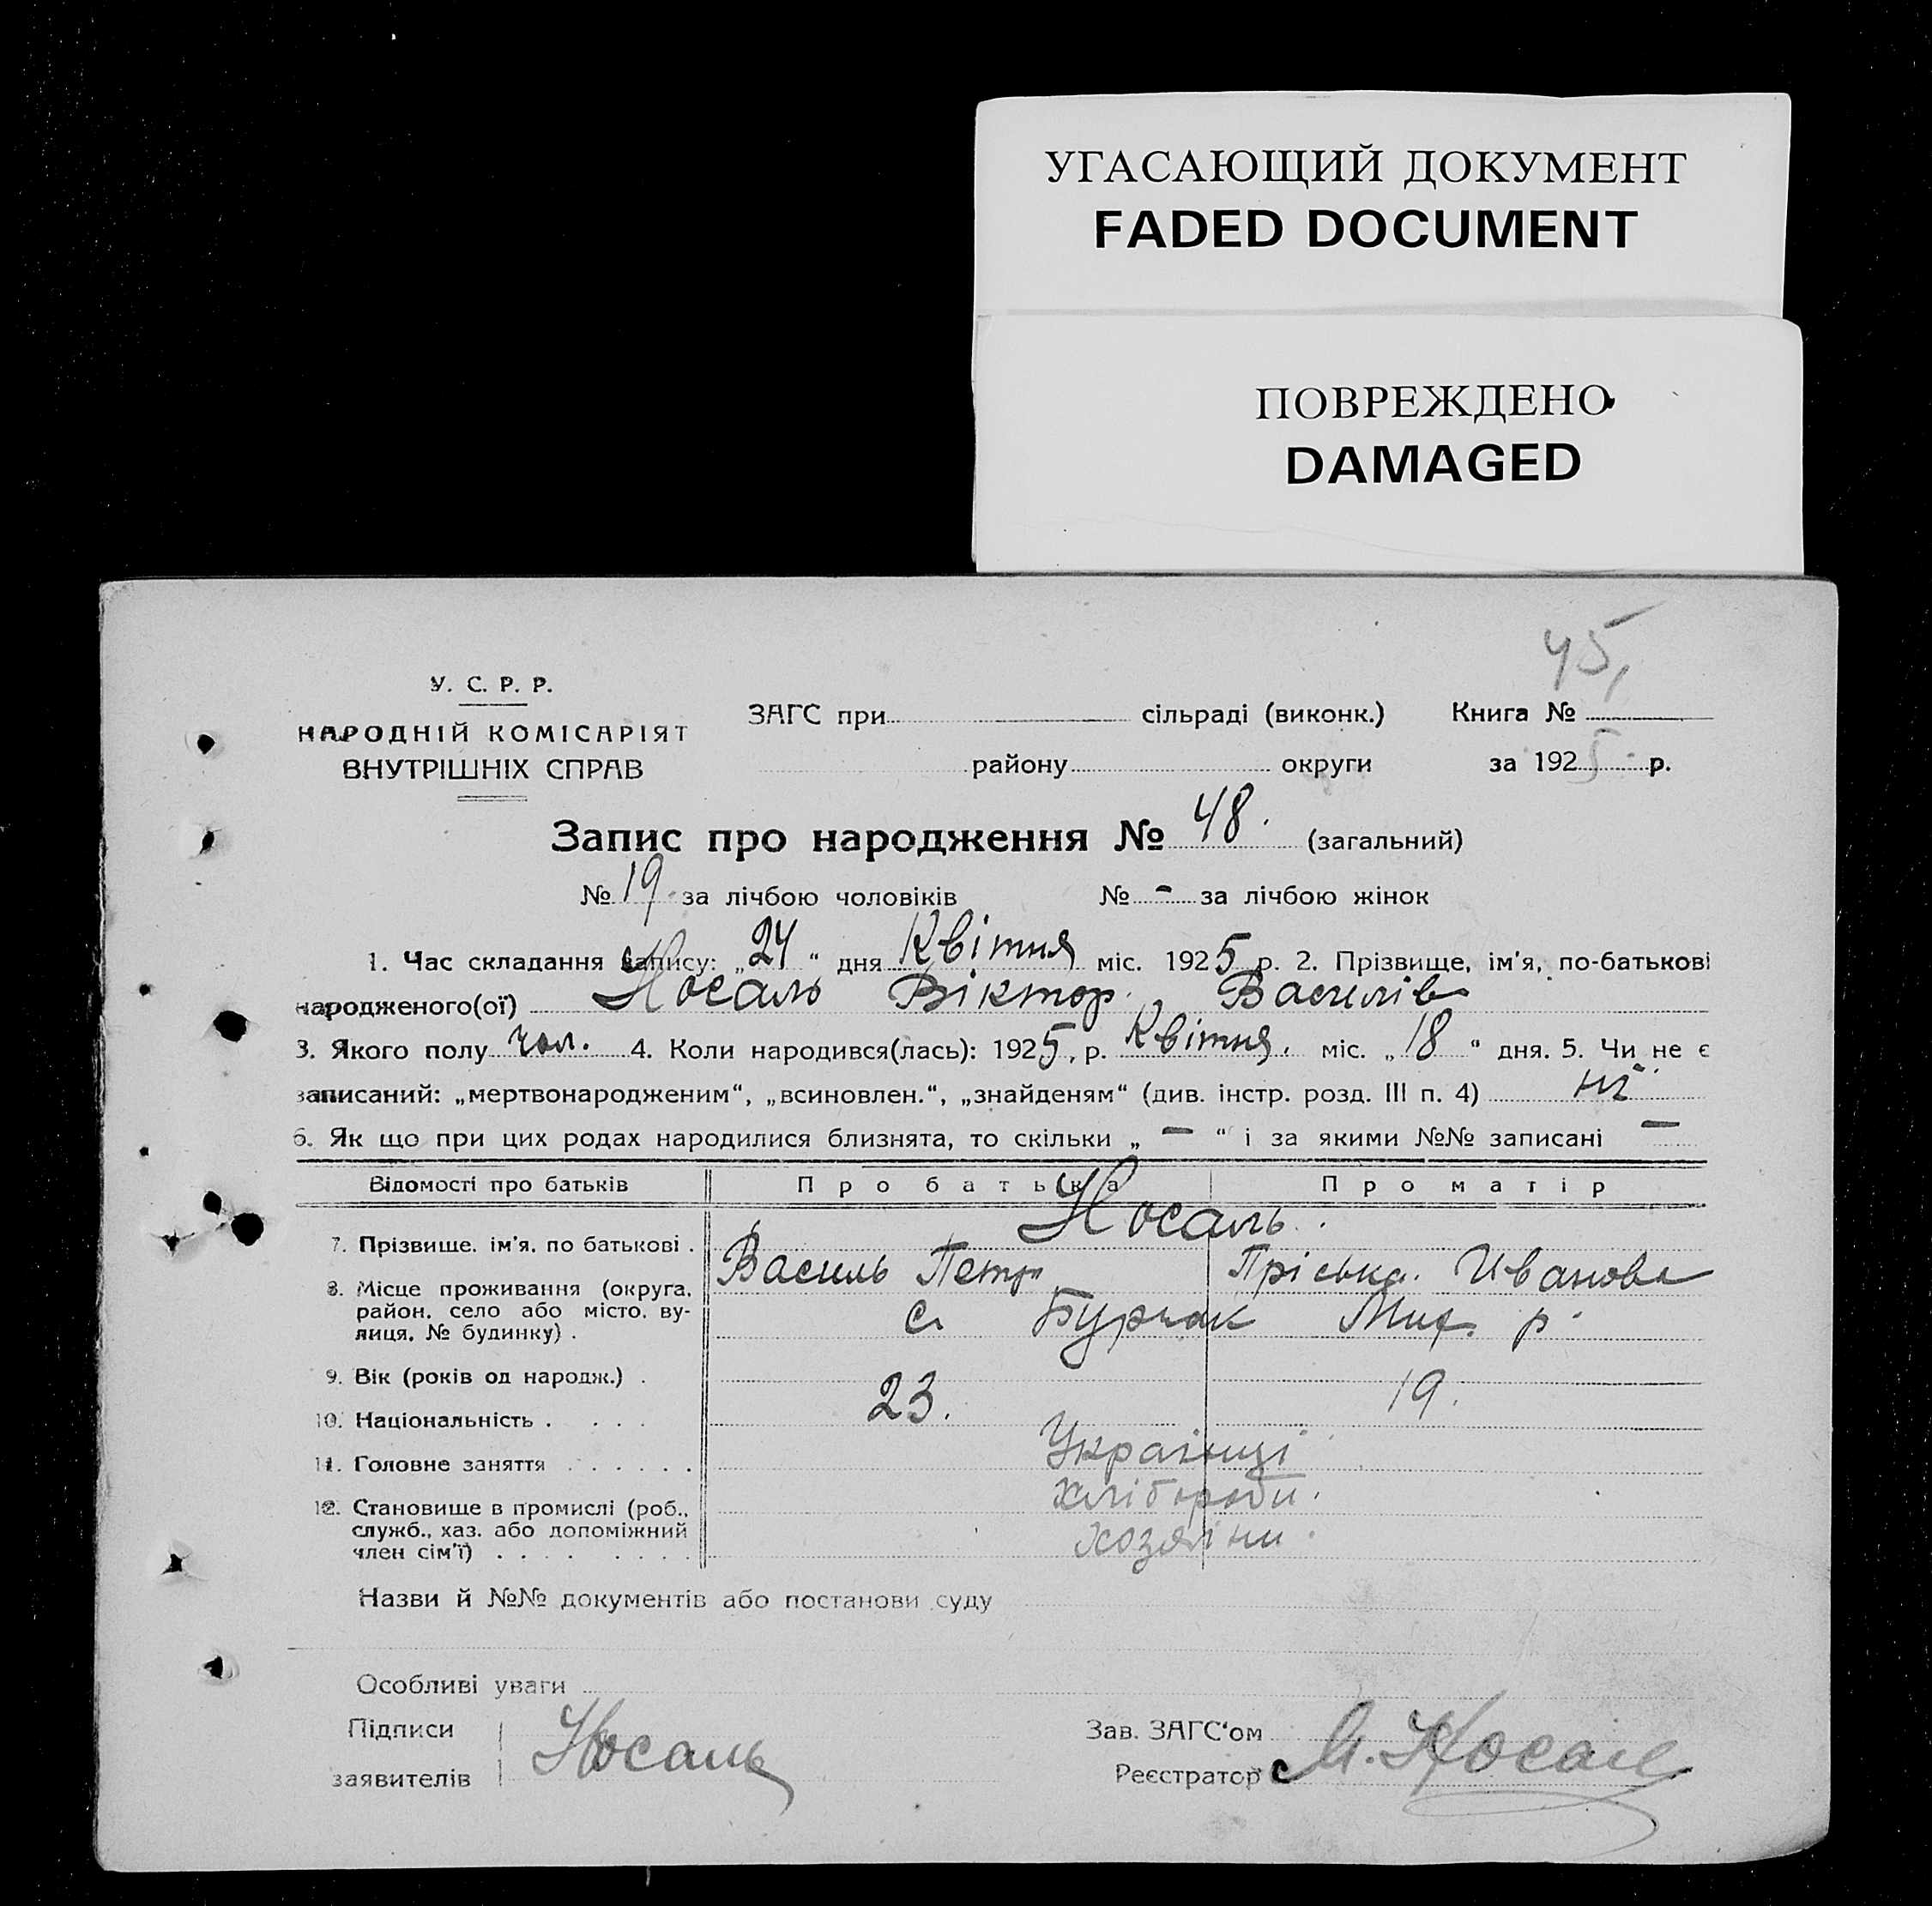 УГАСАЮЩИЙ ДОКУМЕНТ
FADED DOCUMENT
ПОВРЕЖДЕНО
DAMAGED
45,
У. С. Р. Р.
НАРОДНІЙ КОМІСАРІЯТ
ВНУТРІШНІХ СПРАВ
ЗАГС при сільраді (виконк.) Книга №
району округи за 1925 р.
Запис про народження № 48. (загальний)
№ 19 за лічбою чоловіків № - за лічбою жінок
1. Час складання запису: „24“ дня Квітня міс. 1925 р. 2. Прізвище, ім'я, по-батькові
народженого(ої) Носаль Віктор Василів
3. Якого полу чол. 4. Коли народився(лась): 1925, р. Квітня, міс. „18“ дня. 5. Чи не є
записаний: „мертвонародженим“, „всиновлен.“, „знайденям“ (див. інстр. розд. III п. 4) ні
6. Як що при цих родах народилися близнята, то скільки „ — “ і за якими №№ записані —
Відомості про батьків Про батька Про матір
Носаль.
7. Прізвище, ім'я, по батькові . Василь Петр Пріська Иванова
8. Місце проживання (округа, район, село або місто, вулиця, № будинку) . с. Бурчак Мих. р.
9. Вік (років од народж.) . 23. 19.
10. Національність . . . . Українці
11. Головне заняття . . . . . . Хлібороби.
12. Становище в промислі (роб., служб., хаз. або допоміжний член сім'ї) . . . . . . . . Хозяїни.
Назви й №№ документів або постанови суду
Особливі уваги
Підписи заявителів Носаль
Зав. ЗАГС'ом
Реєстратор Носаль